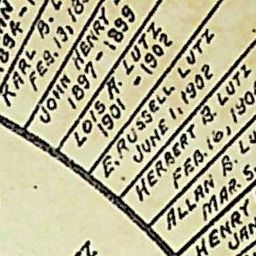 KARL B.
FEB. 13, 18
JOHN HENRY
1897-1899
LOIS A. LUTZ
1901 -1902
E. RUSSELL LUTZ
JUNE 1, 1902
HERBERT B. LUTZ
FEB. 16, 190
ALLAN B. LU
MAR. 5,
HENRY
JAN